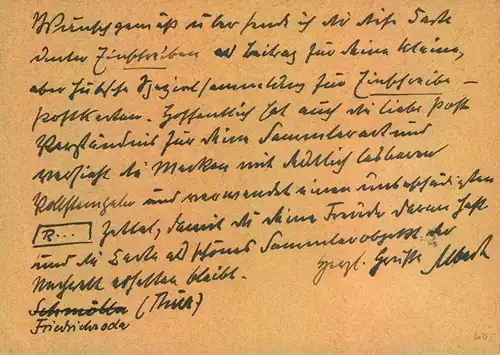 Wunschgemäß übersende ich dir diese Karte
unter Einschreiben als Beitrag für deine kleine,
aber hübsche Spezialsammlung für Einschreibe-
postkarten. Hoffentlich hat auch die liebe Post
Verständnis für deine Sammlerart und
versieht die Marken mit deutlich lesbaren
Vollstempeln und verwendet einen unbeschädigten
R... Zettel, damit du deine Freude daran hast
und die Karte als schönes Sammlerobjekt der
Nachwelt erhalten bleibt.
Herzl. Grüsse
Schmölln (Thür)
Friedrichroda
60-